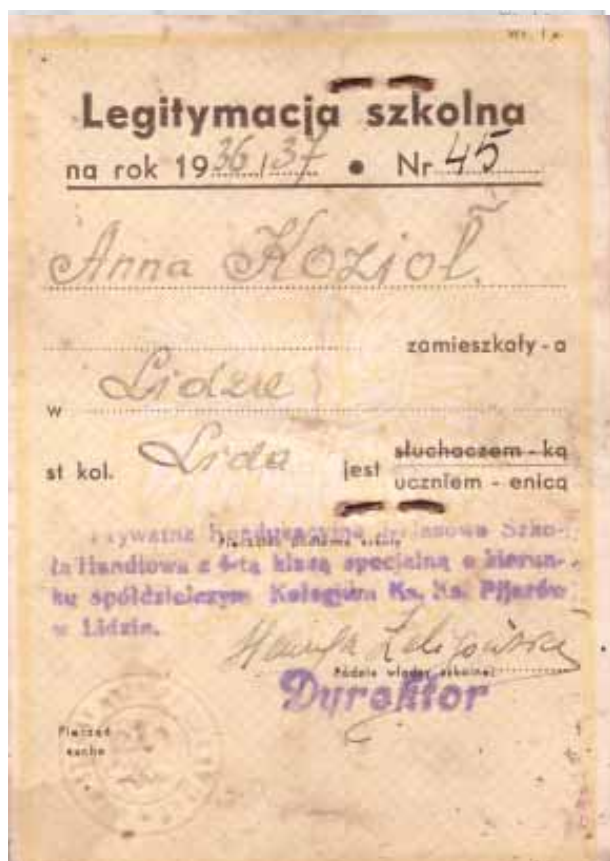 Legitymacja szkolna
na rok 1936/37 • Nr 45
Anna Kozioł
zamieszkały-a
w Lidzie
st kol. Lida jest słuchaczem-ką
uczniem-enicą
Prywatna Koedukacyjna Szko-
ła Handlowa z 4-tą klasą specjalną o kierun-
ku spółdzielczym Kolegjum Ks. Ks. Pijarów
w Lidzie.
Podpis władzy szkolnej
Dyrektor
Pieczęć
sucha